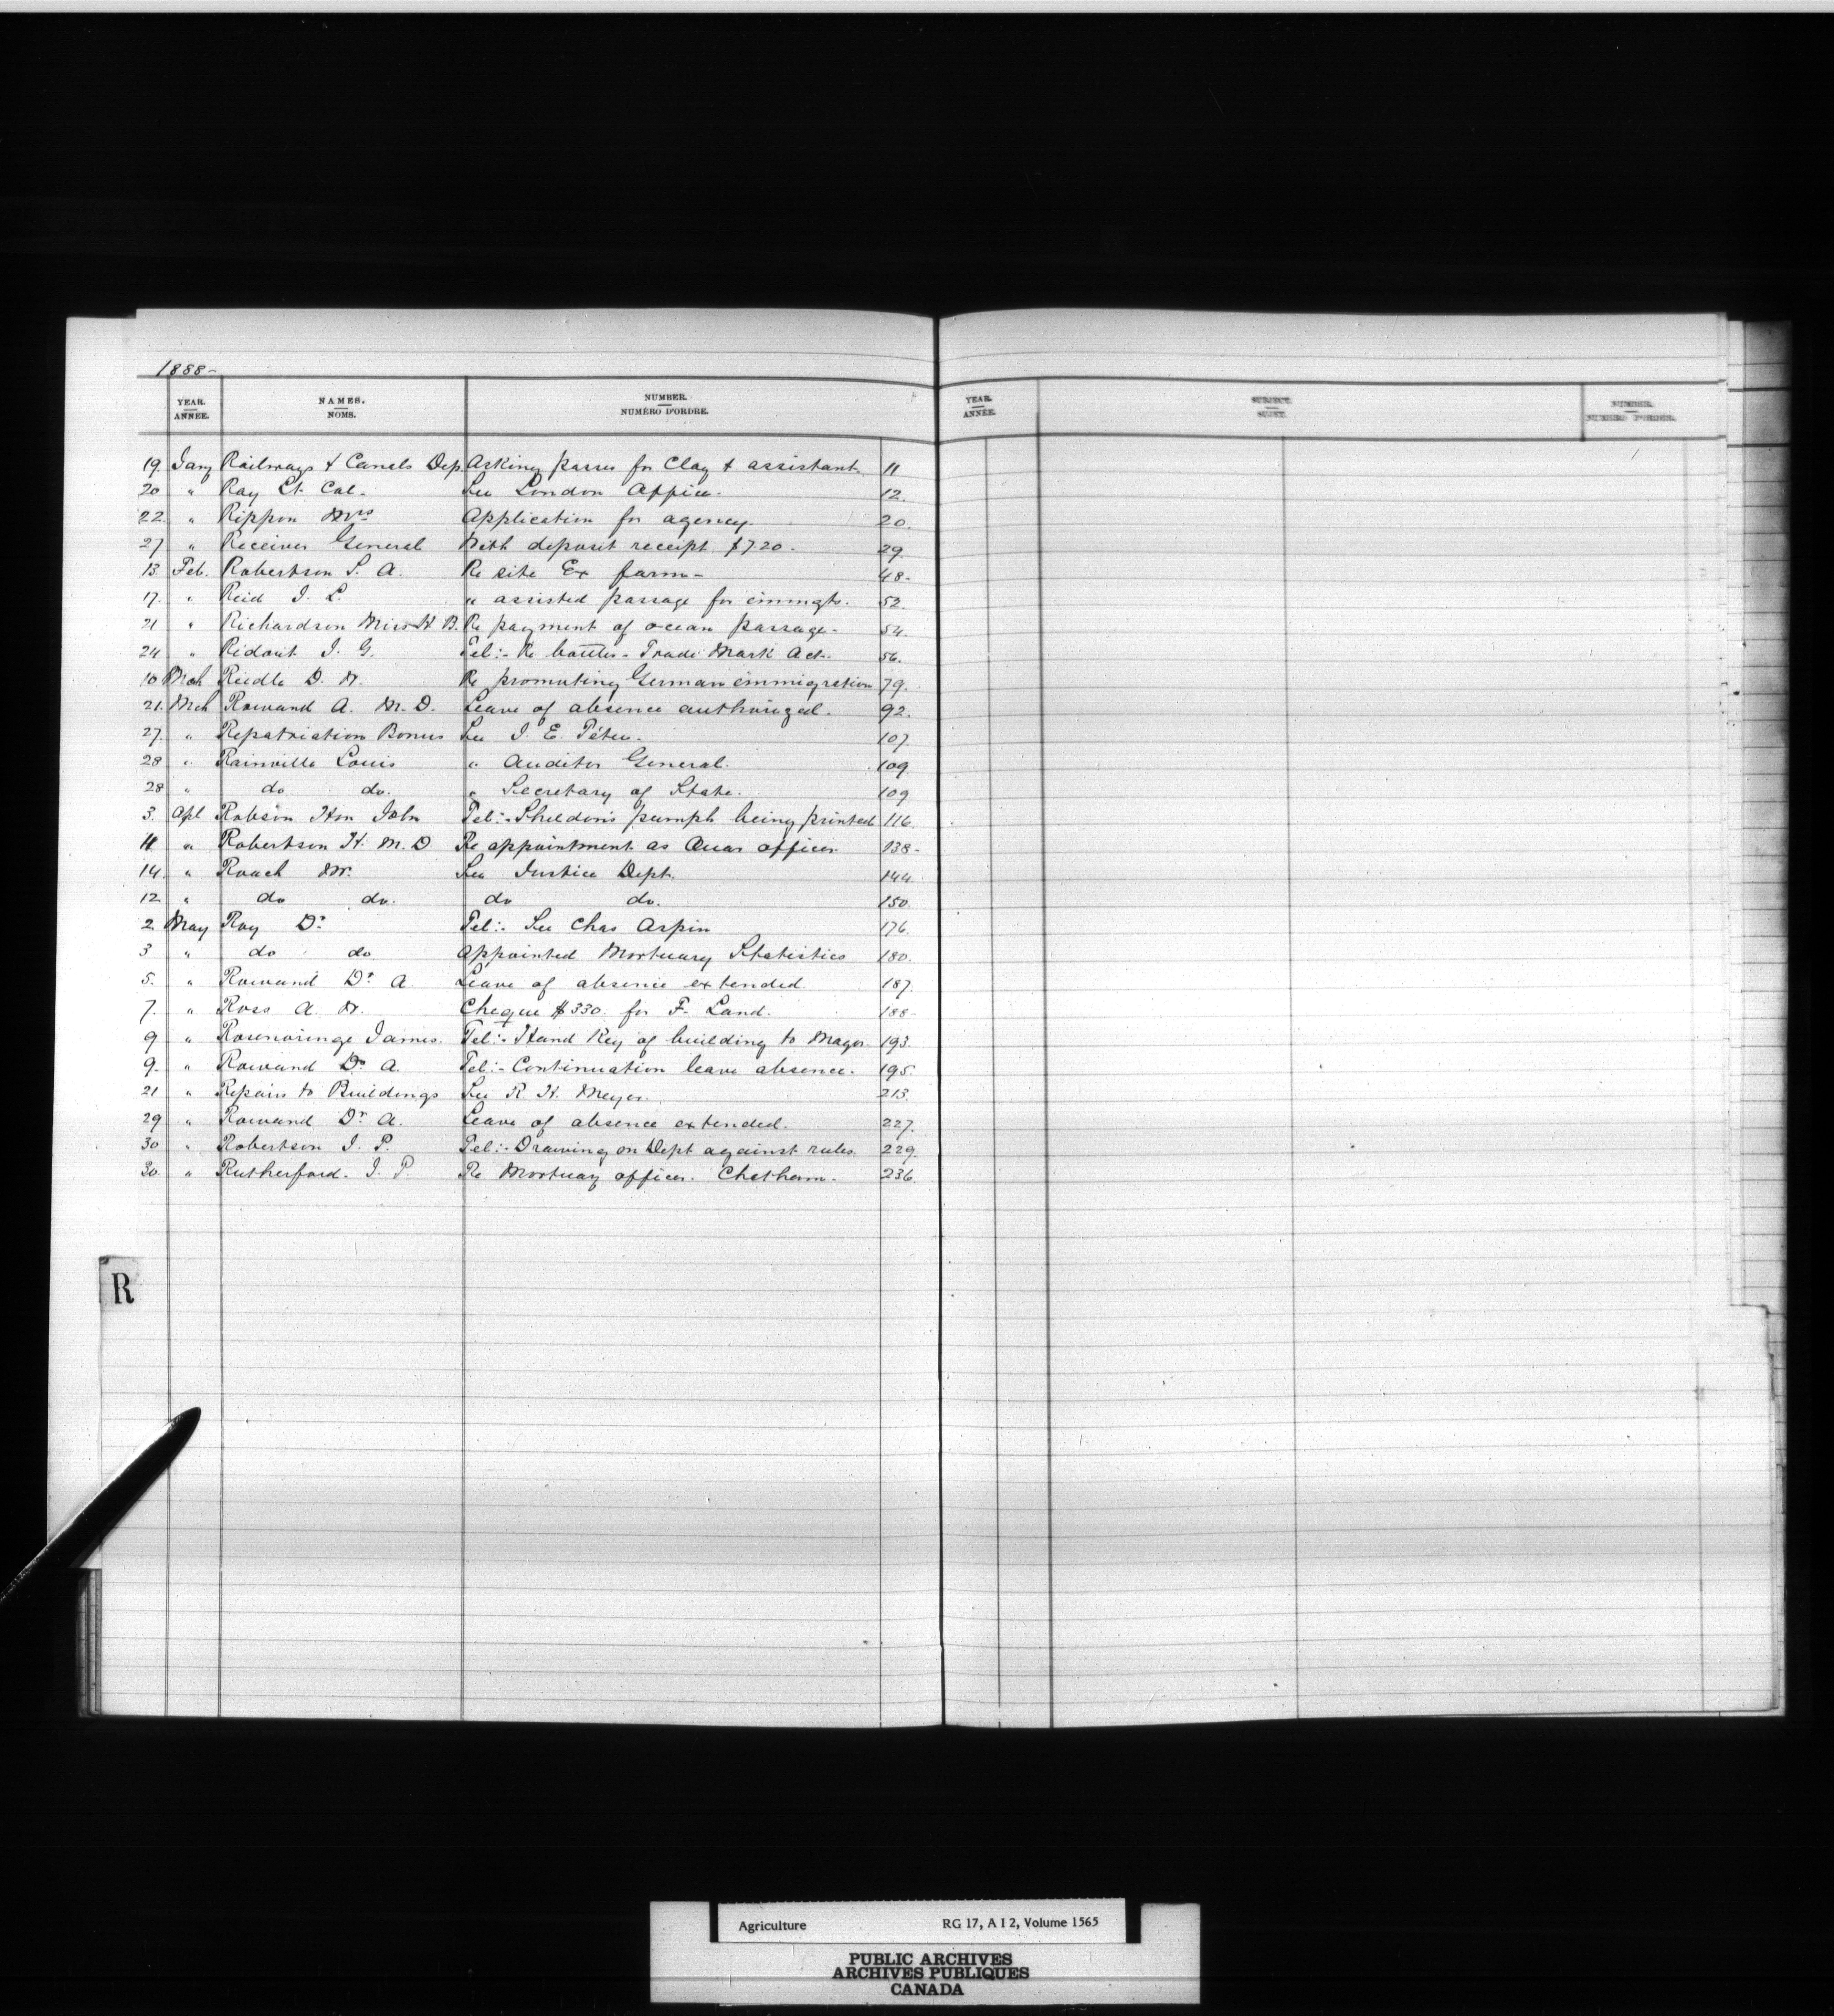 1888-
YEAR. NAMES. NUMBER. YEAR. SUBJECT. NUMBER.
ANNÉE. NOMS. NUMÉRO D'ORDRE. ANNÉE. SUJET. NUMÉRO D'ORDRE.
19. Jany Railways & Canals Dep. Asking passes for Clay & assistant. 11
20 " Ray Lt. Col. See London Office. 12.
22. " Rippon Mrs Application for agency. 20.
27 " Receiver General With deposit receipt $7.20. 29.
13. Feb. Robertson S. A. Re site Ex farm- 48-
17. " Reid J. L. " assisted passage for immgts. 52.
21 " Richardson Miss H. B. Re payment of ocean passage. 54.
24 " Ridout J. G. Tel:- Re bottles- Trade Mark Act. 56.
10 Mch Riedle D. W. Re promoting German immigration 79.
21. Mch Rowand A. M. D. Leave of absence authorized. 92.
27. " Repatriation Bonus See J. E. Têtu. 107.
28 " Rainville Louis " Auditor General. 109.
28 " do do. " Secretary of State. 109
3. Apl Robson Hon John Tel:- Sheldon's pamph being printed 116.
11 " Robertson H. M. D Re appointment as Quar officer. 138-
14. " Roach Mr. See Justice Dept. 144.
12. " do do. do do. 150.
2. May Roy Dr Tel:- See Chas Arpin 176.
3 " do do appointed Mortuary Statistics 180.
5. " Rowand Dr A. Leave of absence extended. 187.
7. " Ross A. W. Cheque $330. for F. Land. 188-
9 " James. Tel:- Hand Key of building to Mayor. 193.
9. " Rowand Dr A. Tel:- Continuation leave absence. 195.
21 " Repairs to Buildings See R. H. Meyer. 213.
29 " Rowand Dr A. Leave of absence extended. 227.
30 " Robertson J. P. Tel:- Drawing on Dept against rules. 229.
30. " Rutherford. J. P. Re Mortuary officer. Chatham. 236.
R
Agriculture RG 17, A I 2, Volume 1565
PUBLIC ARCHIVES
ARCHIVES PUBLIQUES
CANADA